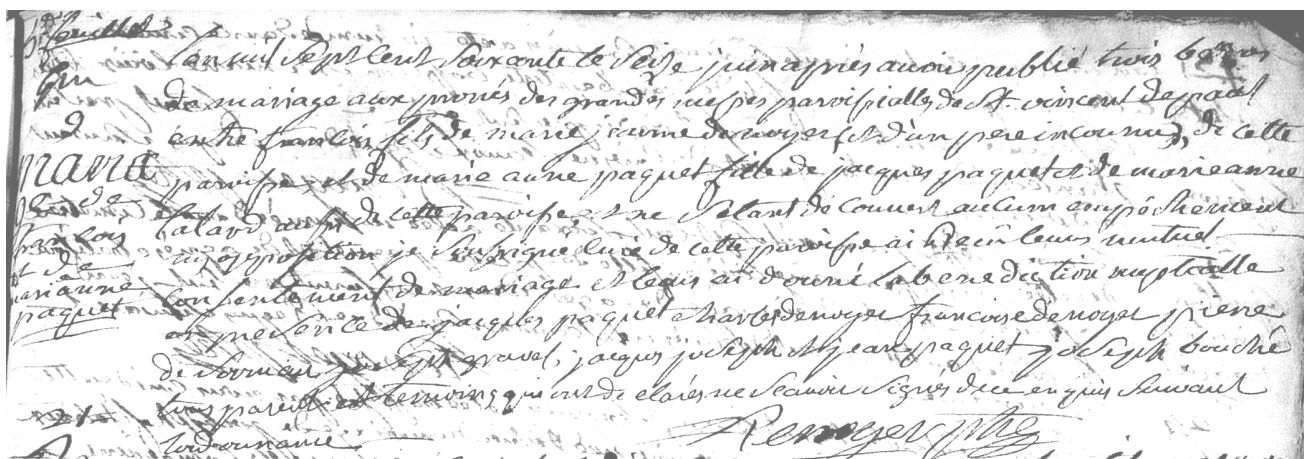 feuillet
16
9
maria
ge de
françois
et de
marianne
paquet
Lan mil sept cent soixante le seize juin apriés avoir publié trois bannes
de mariage aux pronés des grandes messes paroissialles de St vincent de paul
entre francois fils de marie jéanne denoyer et d'un pere inconnud, de cette
paroisse et de marie anne paquet fille de jacques paquet et de marie anne
de cette paroisse, et ne s'etant découvert aucum empéchement
ny opposition je soussigné curé de cette paroisse ai recû leurs mutuel
consentement de mariage et leurs ai donné la benediction nuptialle
en presence de jacques paquet charles denoyer francoise denoyer pierre
joseph gravel, jacques joseph et jean paquet joseph bouché
tous parent et temoins qui ont declarés ne scavoir signés de ce enquis suivant
lordonnance
Renoyer ptre